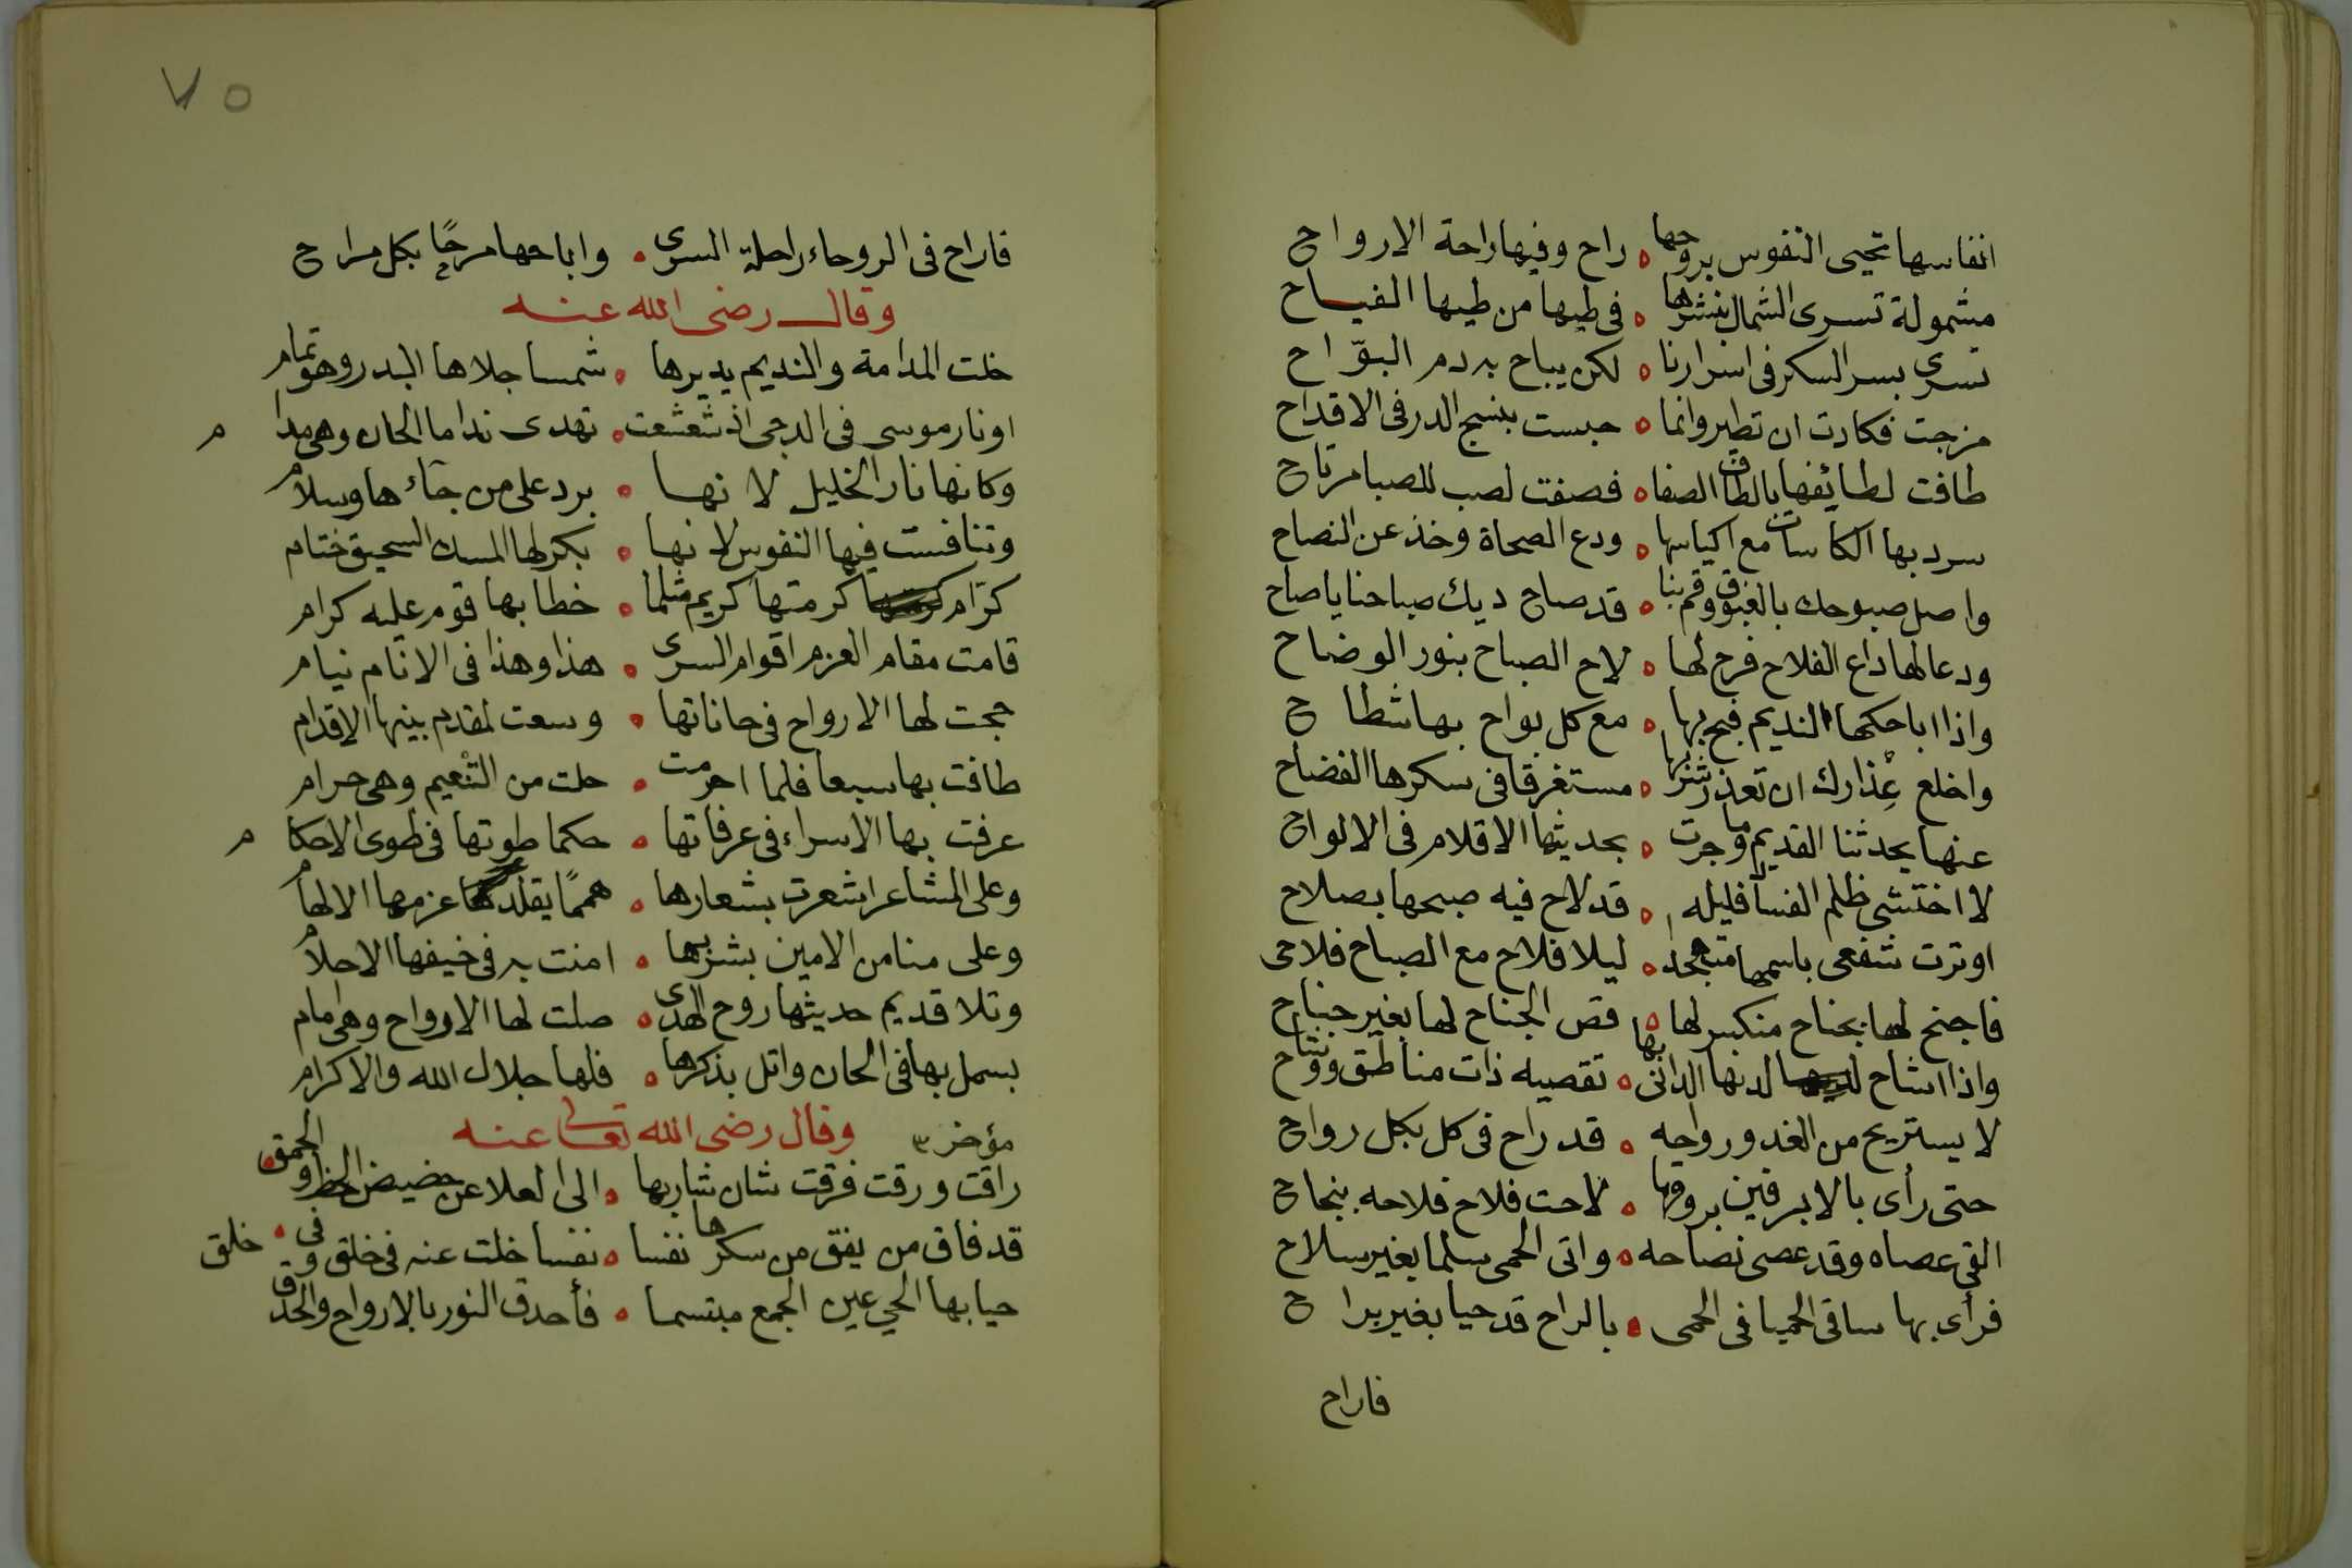 انفاسها تحيى النفوس بروحها ٥ راح وفيها راحة الارواح
مشمولة تسرى الشمال بنشرها ٥ فى طيها من طيها الفياح
تسرى بسر السكر فى اسرارنا ٥ لكن يباح به دم البوّاح
مزجت فكادت ان تطير وانما ٥ حبست بنسج الدر فى الاقداح
طافت لطائفها بالطاف الصفا ٥ فصفت لصب للصبا مرتاح
سرد بها الكاسات مع اكياسها ٥ ودع الصحاة وخذ عن النصاح
واصل صبوحك بالغبوق وقم بنا ٥ قد صاح ديك صباحنا يا صاح
ودعا لها داع الفلاح فرح لها ٥ لاح الصباح بنور الوضاح
واذا اباحكها النديم فبح بها ٥ مع كل بواح بها شطاح
واخلع عذارك ان تعذر شربها ٥ مستغرقا فى سكرها الفضاح
عنها يحدثنا القديم وما جرت ٥ بحديثها الاقلام فى الالواح
لا اختشى ظلم الفسآ فليله ٥ قد لاح فيه صبحها بصلاح
اوترت شفعى باسمها متهجدا ٥ ليلا فلاح مع الصباح فلاحى
فاجنح لها بجناح منكسر لها ٥ قص الجناح لها بغير جناح
واذا انتاح لدنها الدانى بها ٥ تقصيه ذات مناطق ووشاح
لا يستريح من الغدو رواحه ٥ قد راح فى كل بكل رواح
حتى رأى بالابرقين بروقها ٥ لاحت فلاح فلاحه بنجاح
القى عصاه وقد عصى نصاحه ٥ واتى الحمى سلما بغير سلاح
فرأى بها ساقى الحميا فى الحمى ٥ بالراح قد حيا بغير براح
فاراح
٧٥
فاراح فى الروحاء راحلة السرى ٥ واباحها مرحًا بكل مراح
وقال رضى الله عنه
خلت المدامة والنديم يديرها ٥ شمسا جلاها البدر وهو تمام
او نار موسى فى الدجى اذ شعشعت ٥ تهدى نداما الحان وهى مدام
وكانها نار الخليل لانها ٥ برد على من جآءها وسلام
وتنافست فيها النفوس لانها ٥ بكر لها المسك السحيق ختام
كرّام كرمتها كريم مثلما ٥ خطابها قوم عليه كرام
قامت مقام العزم اقوام السرى ٥ هذا وهذا فى الانام نيام
حجت لها الارواح فى حاناتها ٥ وسعت لمقدم بينها الاقدام
طافت بها سبعا فلما احرمت ٥ حلت من التنعيم وهى حرام
عرفت بها الاسراء فى عرفاتها ٥ حكما طوتها فى طوى الاحكام
وعلى المشاعر اشعرت بشعارها ٥ همما يقلد عزمها الالهام
وعلى منا من الامين بشربها ٥ امنت به فى خيفها الاحلام
وتلا قديم حديثها روح الهدى ٥ صلت لها الارواح وهى امام
بسمل بها فى الحان واتل بذكرها ٥ فلها جلال الله والاكرام
مؤخر ٣ وقال رضى الله تعالى عنه
راقت ورقت فرقت شان شاربها ٥ الى العلا عن حضيض الحظ والحمق
قد فاق من يفق من سكرها نفسا ٥ نفسا خلت عنه فى خلق وفى خلق
حيا بها الحي عين الجمع مبتسما ٥ فأحدق النور بالارواح والحدق